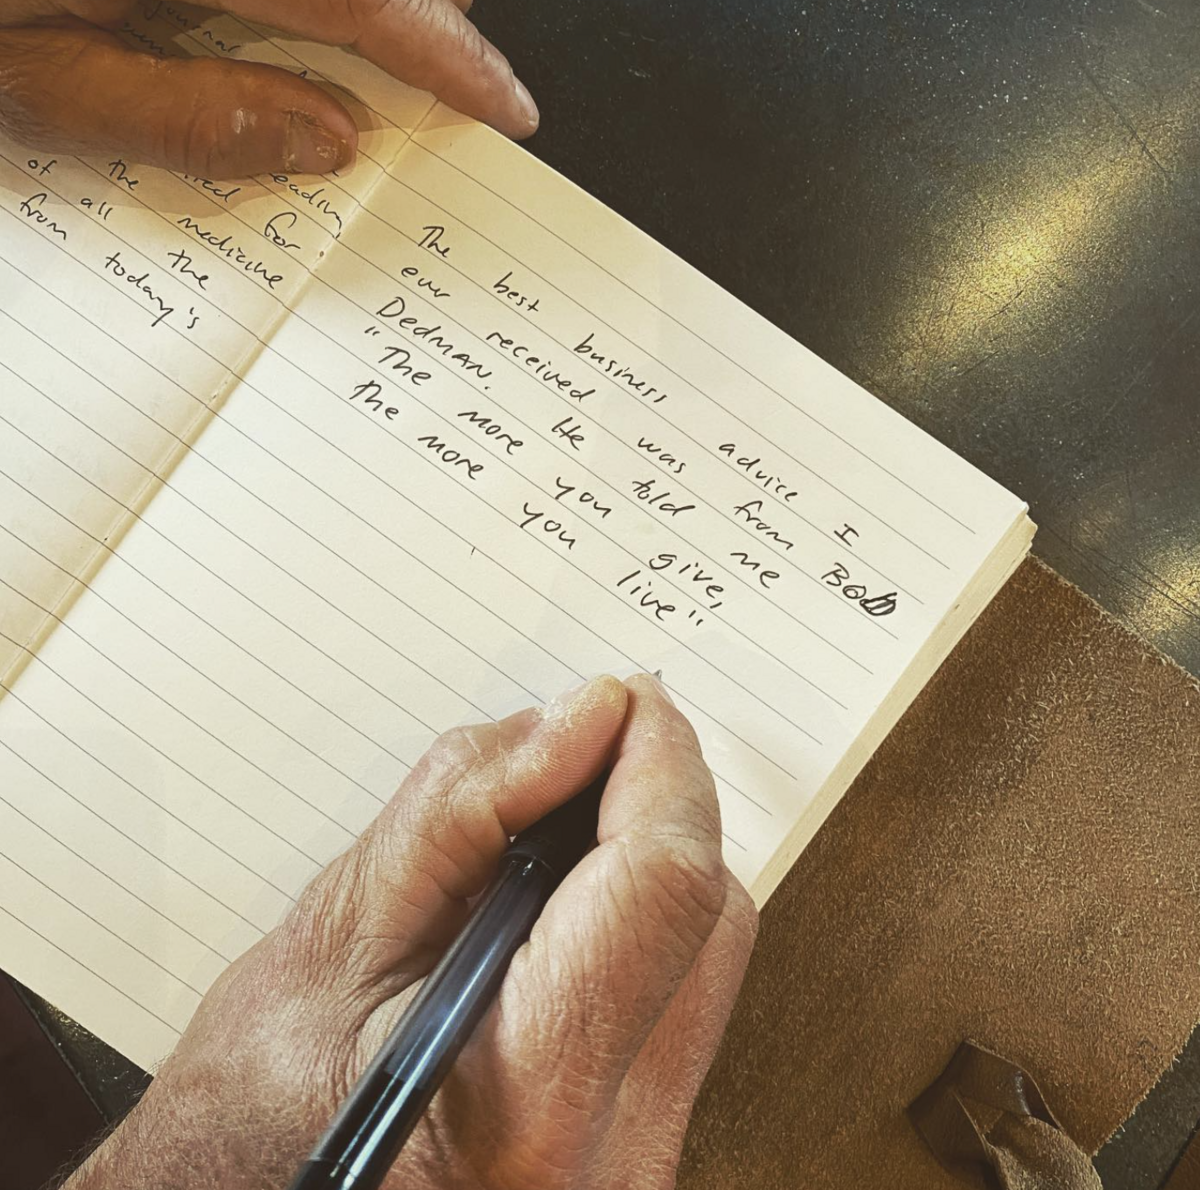 Journal
eading,
ired for
the medicine
of all the
from today's
The best business advice I
ever received was from BOB
Dedman. He told me
"The more you give,
the more you live"